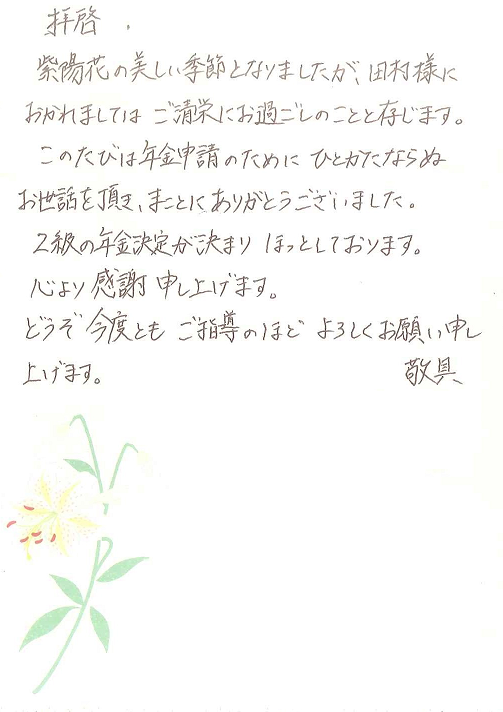 拝啓
紫陽花の美しい季節となりましたが、田村様に
おかれましては ご清栄にお過ごしのことと存じます。
このたびは年金申請のために ひとかたならぬ
お世話を頂き、まことにありがとうございました。
2級の年金決定が決まり ほっとしております。
心より 感謝 申し上げます。
どうぞ 今度とも ご指導のほど よろしくお願い申し
上げます。 敬具